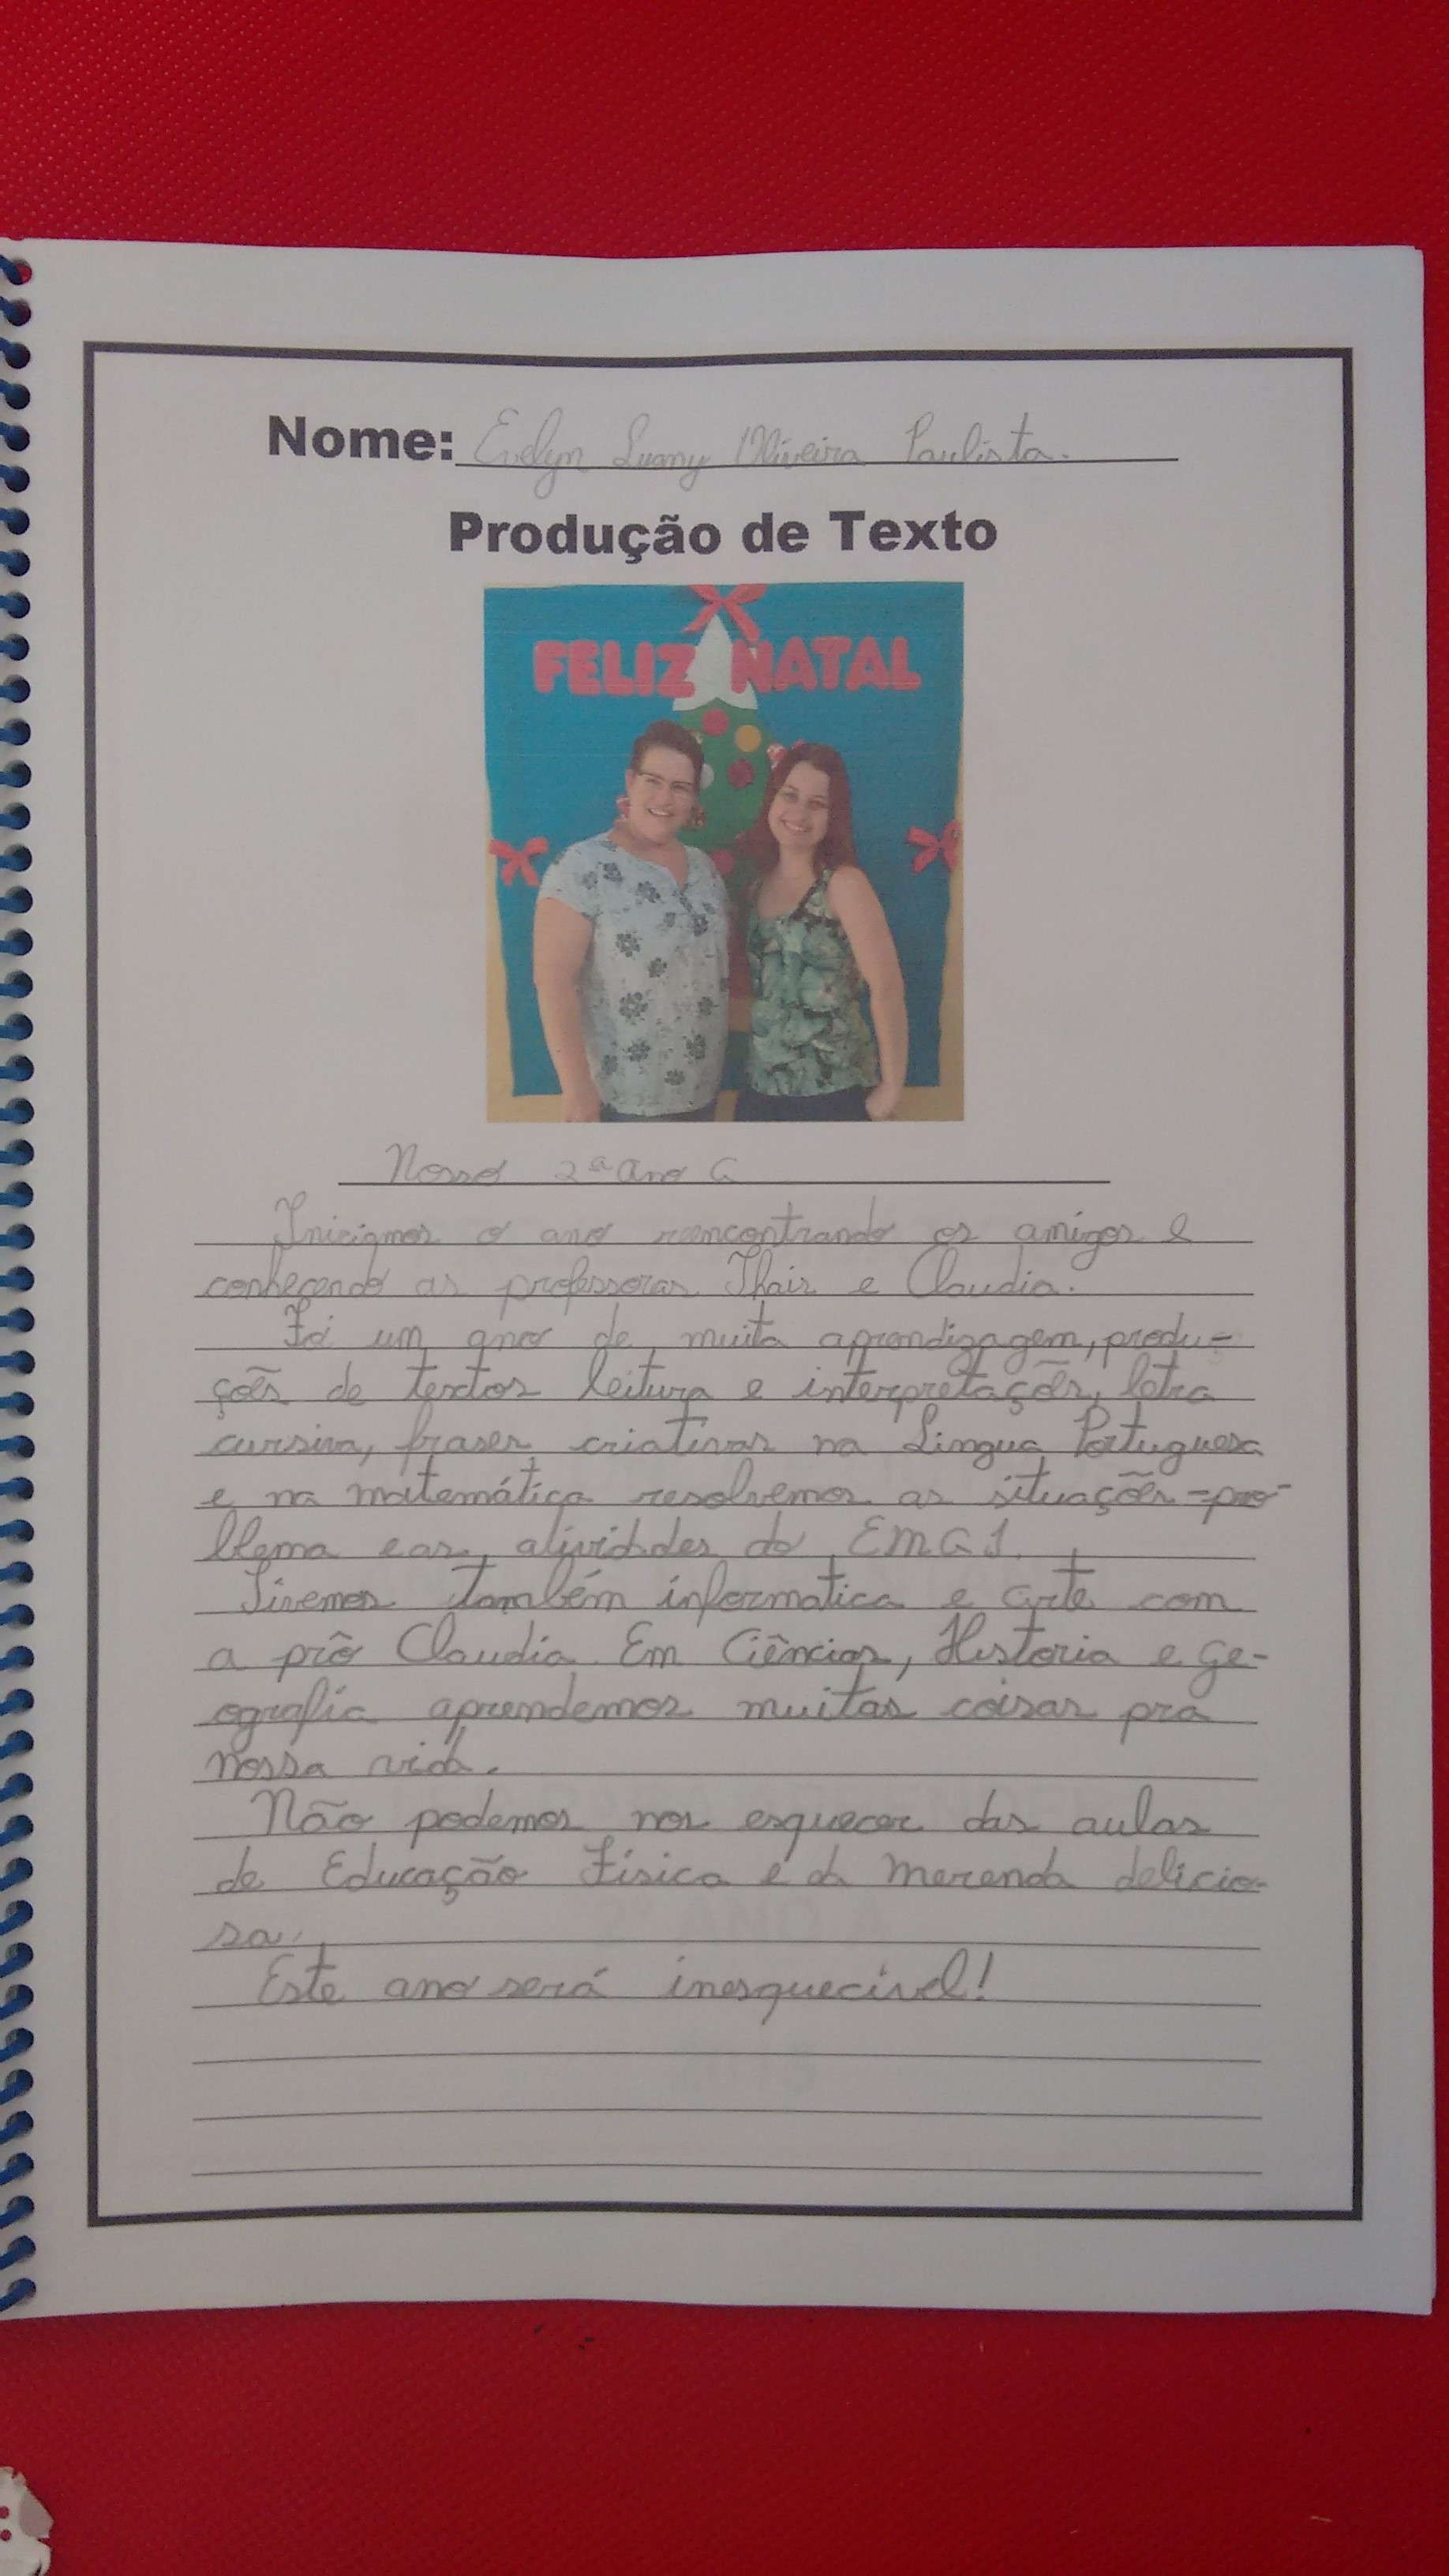 Nome: Evelyn Luany Oliveira Paulista.
Produção de Texto
FELIZ NATAL
Nosso 2º ano G
Iniciamos o ano reencontrando os amigos e
conhecendo as professoras Thais e Claudia.
Foi um ano de muita aprendizagem, produ-
ções de textos leitura e interpretações, letra
cursiva, frases criativas na Língua Portuguesa
e na matemática resolvemos as situações-pro-
blema e as atividades do EMAI.
Tivemos também informatica e arte com
a prô Claudia. Em Ciências, Historia e Ge-
ografia aprendemos muitas coisas pra
nossa vida.
Não podemos nos esquecer das aulas
de Educação Física e da merenda delicio-
sa.
Este ano será inesquecível!